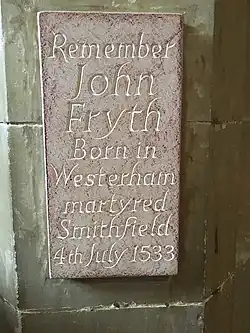 Remember
John
Fryth
Born in
Westerham
martyred
Smithfield
4th July 1533